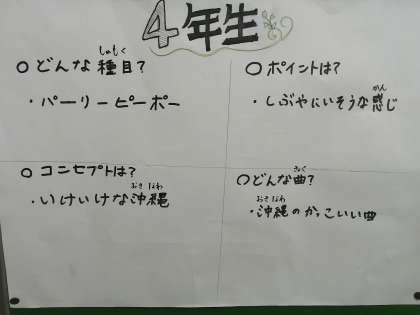 4年生
○どんな種目?
しゅもく
・パーリーピーポー
○ポイントは?
・しぶやにいそうな感じ
かん
○コンセプトは?
・いけいけな沖縄
おきなわ
○どんな曲?
きょく
・沖縄のかっこいい曲
おきなわ